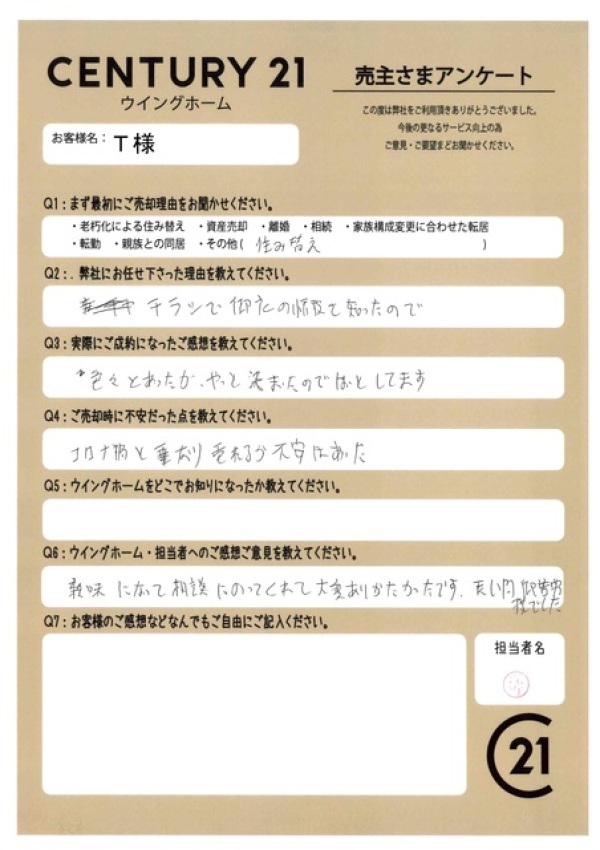 CENTURY 21
ウイングホーム
売主さまアンケート
この度は弊社をご利用頂きありがとうございました。
今後の更なるサービス向上の為
ご意見・ご要望をお聞かせください。
お客様名：T様
Q1：まず最初にご売却理由をお聞かせください。
・老朽化による住み替え ・資産売却 ・離婚 ・相続 ・家族構成変更に合わせた転居
・転勤 ・親族との同居 ・その他( 住み替え )
Q2：. 弊社にお任せ下さった理由を教えてください。
チラシで御社の 知ったので
Q3：実際にご成約になったご感想を教えてください。
色々とあったが、やっと決まったのでほっとしてます
Q4：ご売却時に不安だった点を教えてください。
コロナ禍と重なり売れるか不安はあった
Q5：ウイングホームをどこでお知りになったか教えてください。
Q6：ウイングホーム・担当者へのご感想ご意見を教えてください。
親味になって相談にのってくれて大変ありがたかったです。長い間
でした
Q7：お客様のご感想などなんでもご自由にご記入ください。
担当者名
21